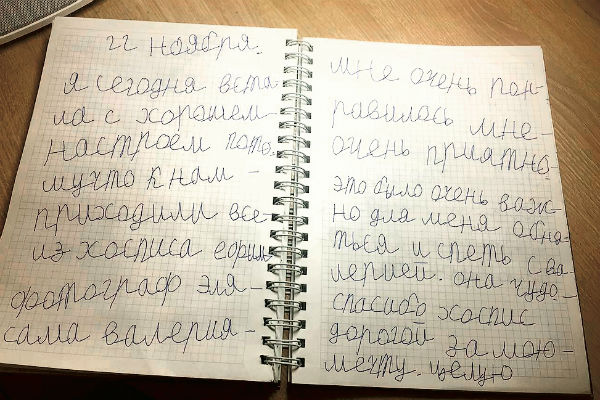 22 ноября.
я сегодня вста
ла с хорошем-
настроем пото.
мучто к нам -
приходили все-
из хосписа ефим.
фотограф эля-
сама валерия-
мне очень пон-
равилось мне-
очень приятно.
это было очень важ-
но для меня обня-
ться и спеть с ва
лерией. она чудо-
спасибо хоспис
дорогой за мою-
мечту. целую